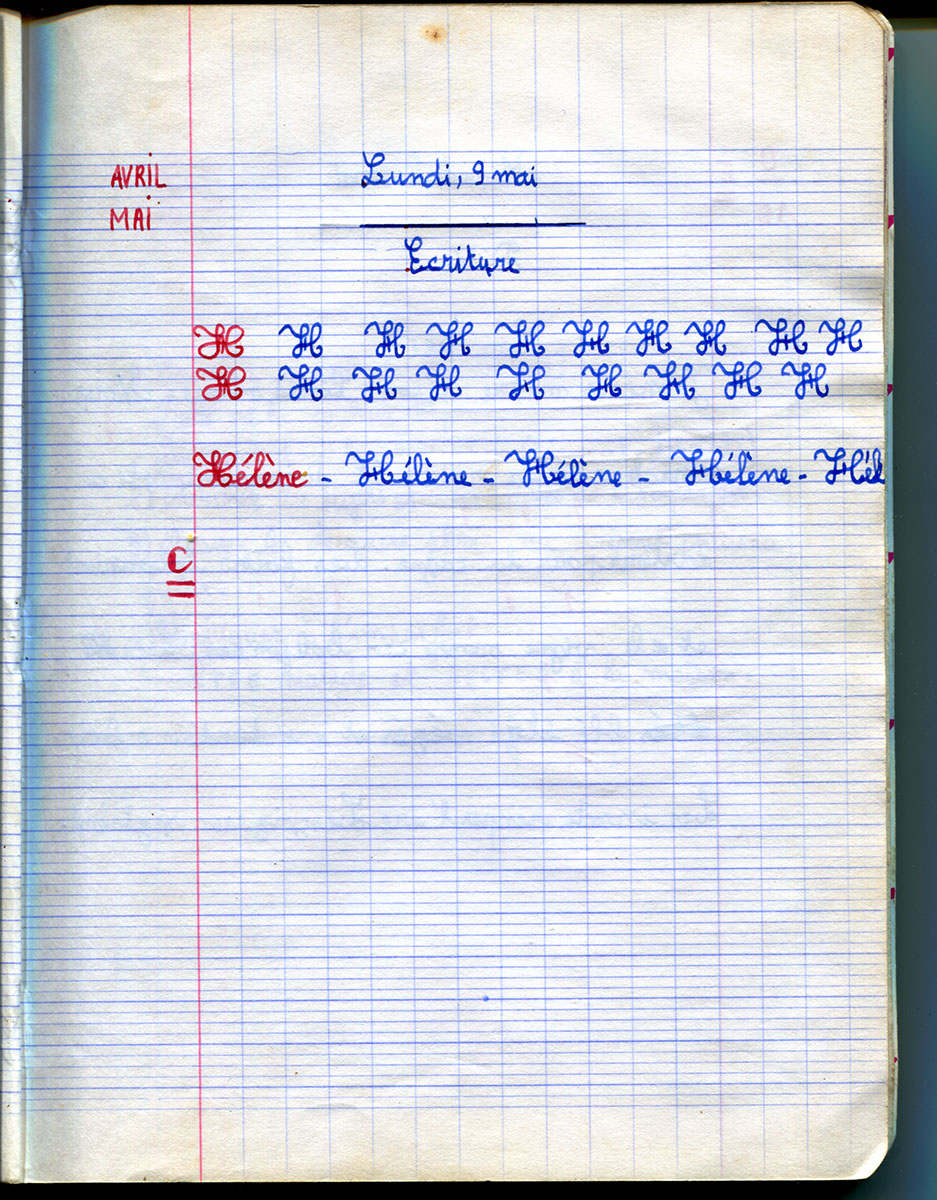 AVRIL
MAI
Lundi, 9 mai
Ecriture
H H H H H H H H H H
H H H H H H H H H
Hélène - Hélène - Hélène - Hélène - Hél
C